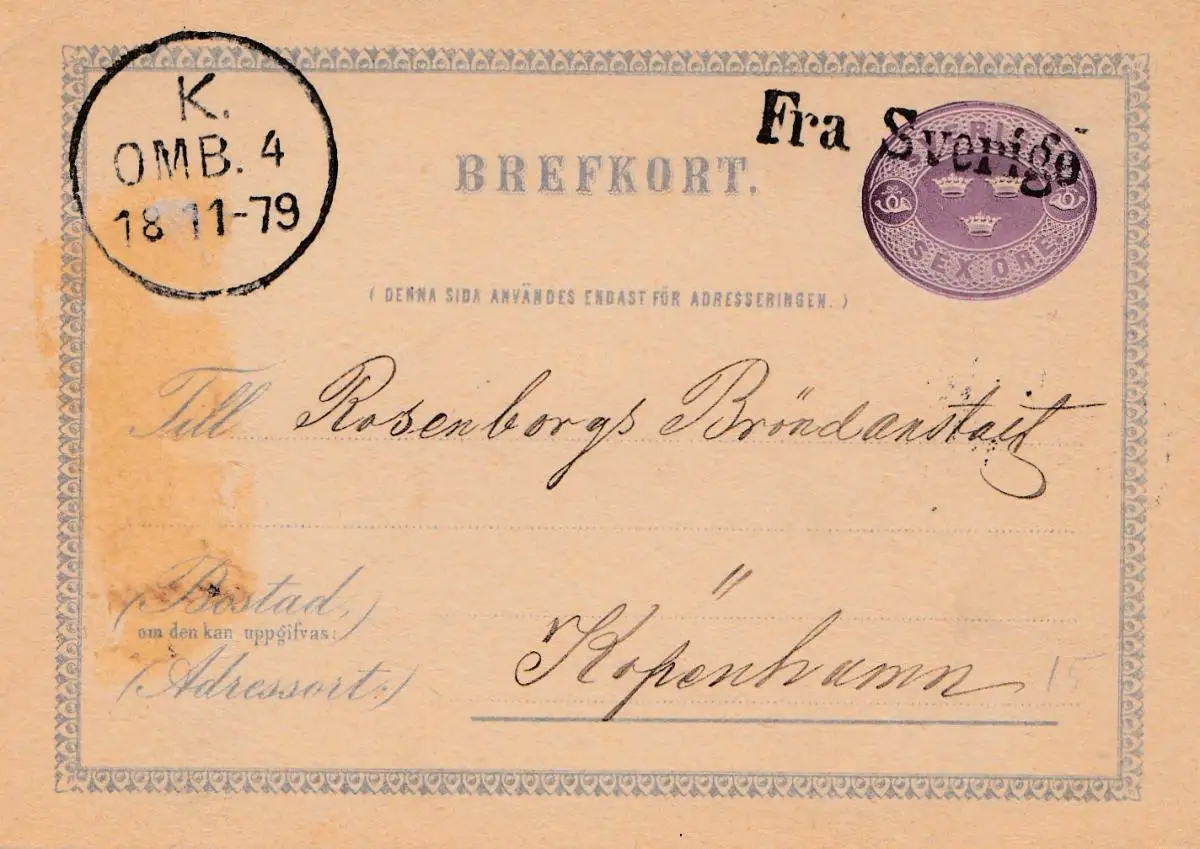 K.
OMB. 4
18 11-79
Fra Sverige
BREFKORT.
SVERIGE
SEX ÖRE
(DENNA SIDA ANVÄNDES ENDAST FÖR ADRESSERINGEN.)
Till Rosenborgs Bröndanstalt
(Bostad,
om den kan uppgifvas:)
Köpenhamn
(Adressort:)
15